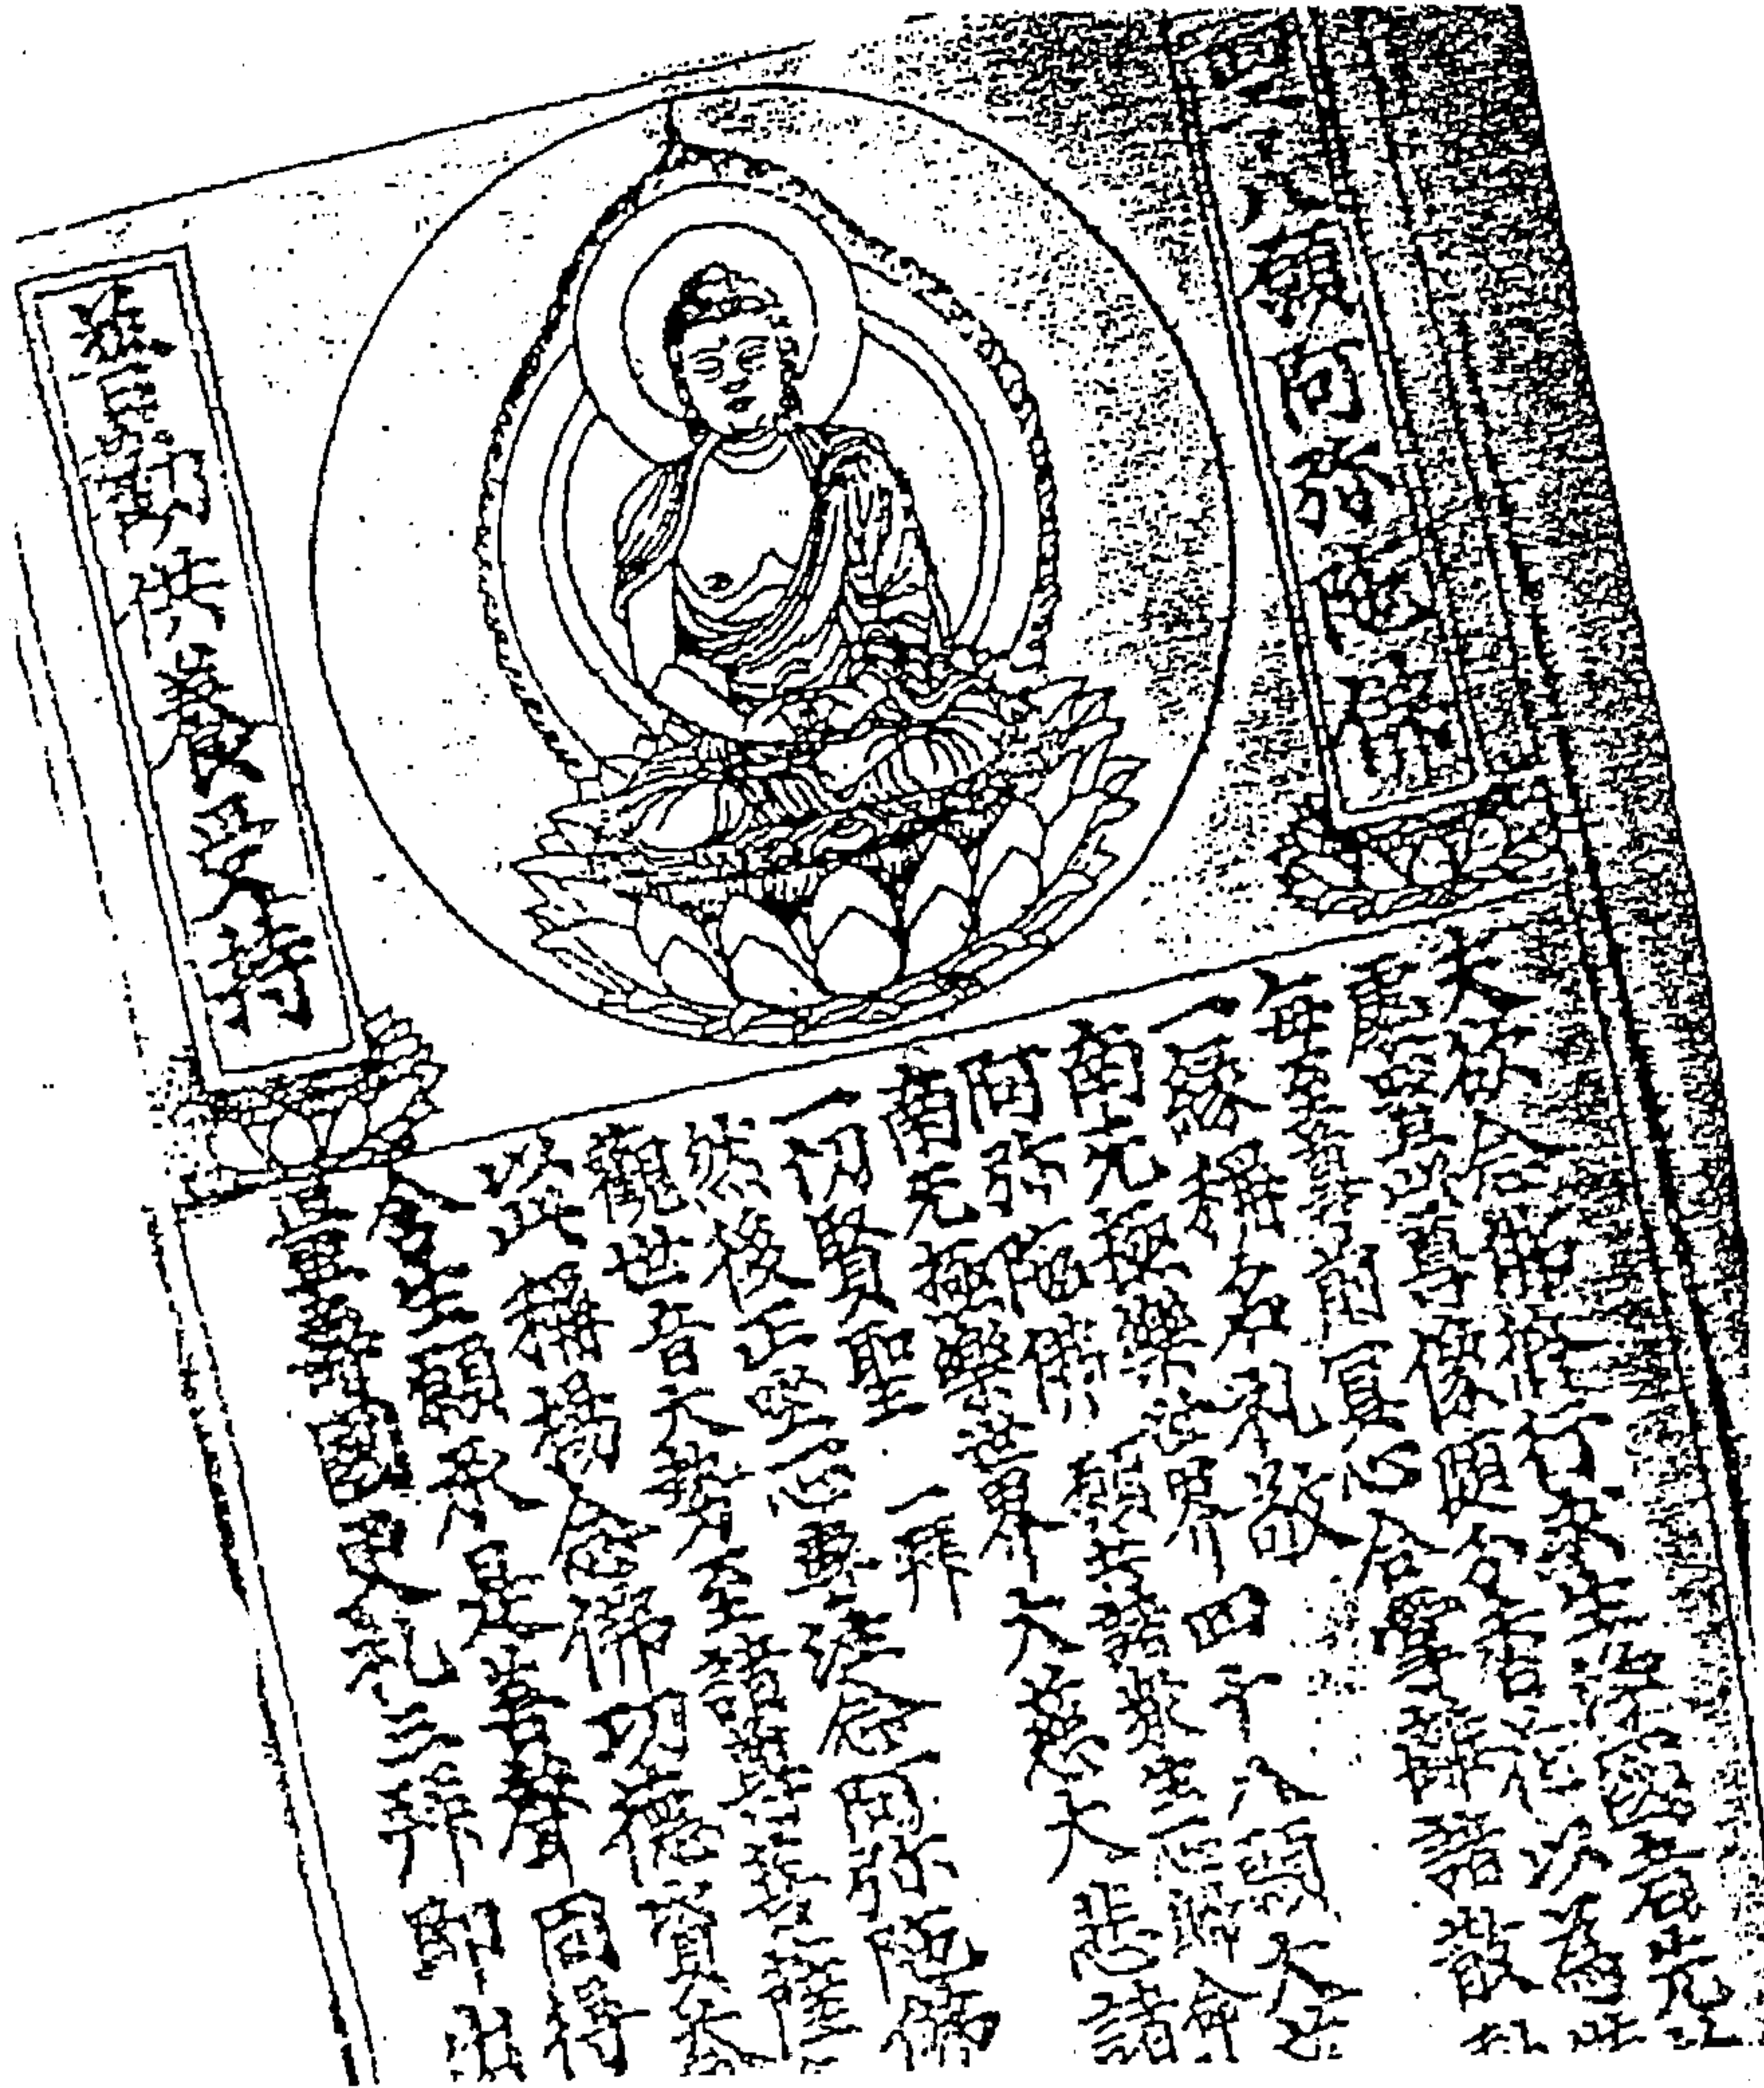 四十八願阿弥陁佛
普勸供養受持
夫欲念佛修行求生淨國者先
處置其尊像随分香花以為
每至尊前冥心合掌離諸散
一縁稱名礼敬
南无極樂世界四十八願大慈
阿弥陁佛 願共諸衆生一心歸命
南无極樂世界大慈大悲諸
一切賢聖 一拜
然後正坐一心專注念阿弥陁佛
觀世音大勢至諸尊菩薩
以此稱揚念佛功德資益
含生願承是善聲同得
國更礼三拜即出